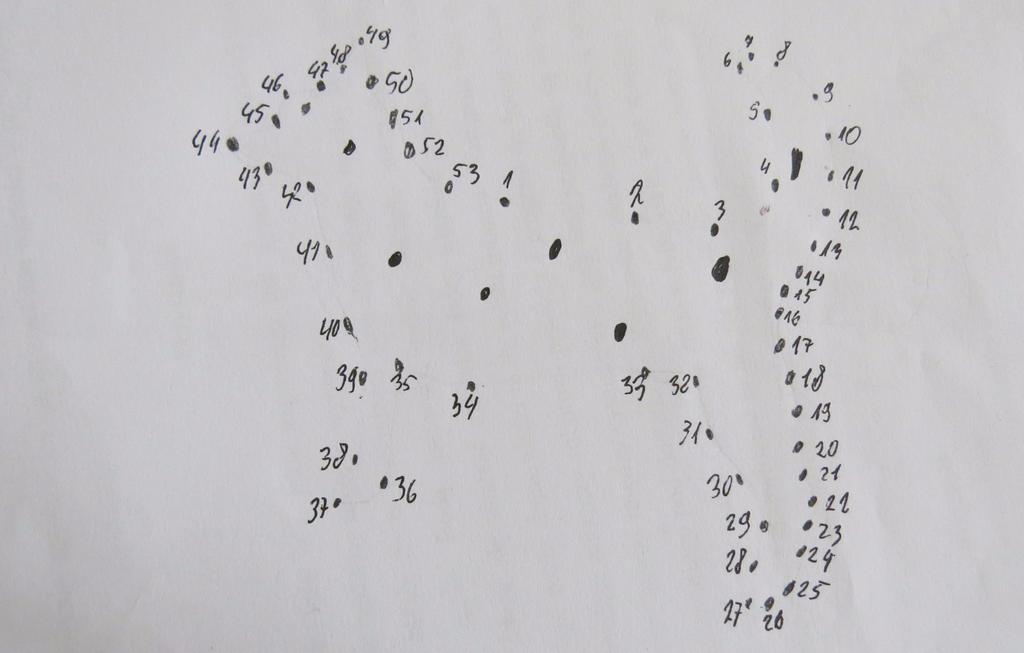 49
48
7
8
6
47
46
50
9
45
5
51
10
44
52
43
53
4
11
42
1
2
3
12
41
13
14
15
16
40
17
39
35
33
32
18
34
19
31
38
20
21
36
30
37
22
29
23
28
24
25
27
26